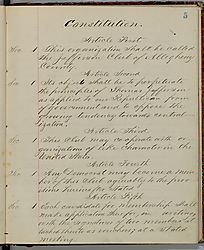 5
Constitution.
Article First
Sec. 1 This organization shall be called
the Jefferson Club of Allegheny
County.
Article Second
Sec. 1 Its object shall be to perpetuate
the principles of Thomas Jefferson
as applied to our Republican form
of government and to oppose the
growing tendency towards central-
ization.
Article Third
Sec. 1 This Club may cooperate with or-
ganizations of like Character in the
United States
Article Fourth
Sec. 1 Any Democrat may become a mem-
ber of this Club agreeably to the
Article Fifth
Sec. 1 Each candidate for Membership shall
make application therefor in writing
with the of two members
as vouchers, at a stated
meeting.